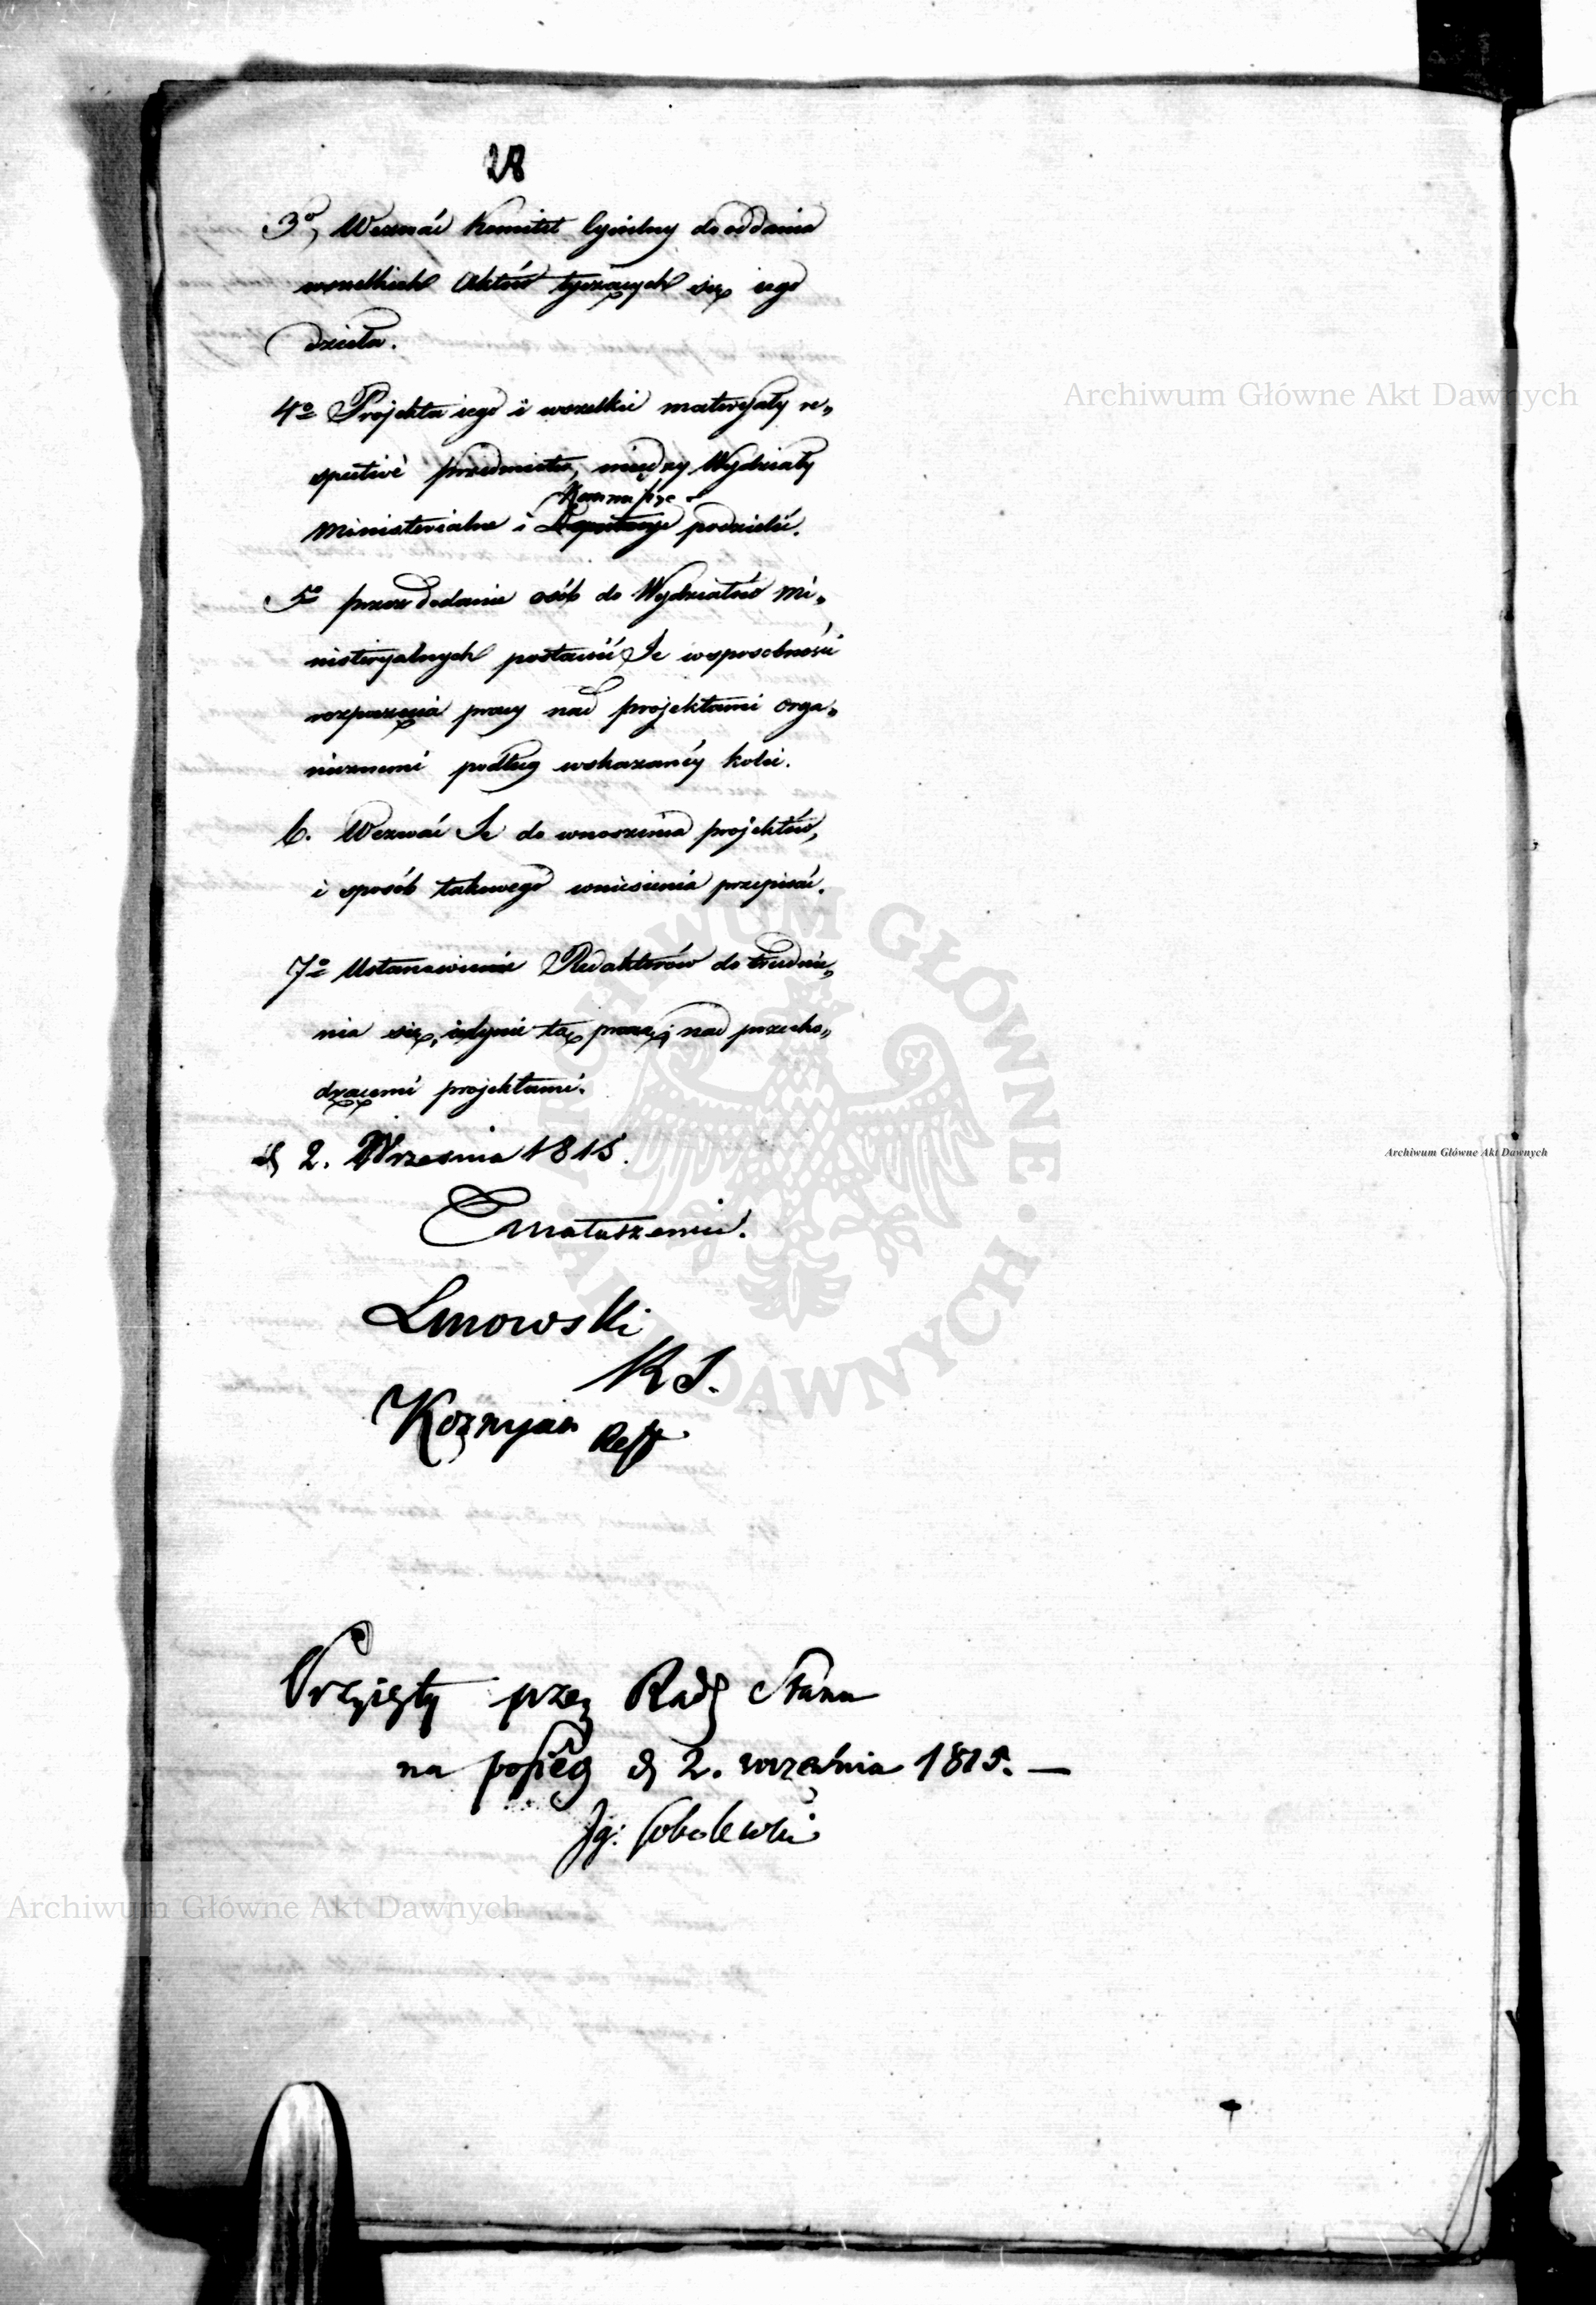 28
3º, Wezwać Komitet Cywilny do oddania
wszelkich Aktów tyczących się iego
dzieła.
4º Projekta iego i wszelkie materyały re„
spective przedmiotu, między Wydziały
Kommissye
Ministerialne i Deputacye podzielić.
5º przez dodanie osób do Wydziałów Mi„
nisteryalnych postawić Je w sposobności
rozpoczęcia pracy nad projektami orga„
nicznemi podług wskazanéy kolei.
6. Wezwać Je do wnoszenia projektów,
i sposób takowego wniesienia przepisać.
7º Ustanowienie Redaktorów do trudnie„
nia się iedynie tą pracą nad przecho„
dzącemi projektami.
d 2. Września 1815.
Matuszewic.
Linowski
RS.
Kozmyan Reff
Przyięty przez Radę Stanu
na posieg d 2. września 1815. —
Ig: Sobolewski
Archiwum Główne Akt Dawnych
Archiwum Główne Akt Dawnych
Archiwum Główne Akt Dawnych
ARCHIWUM GŁÓWNE · AKT DAWNYCH ·